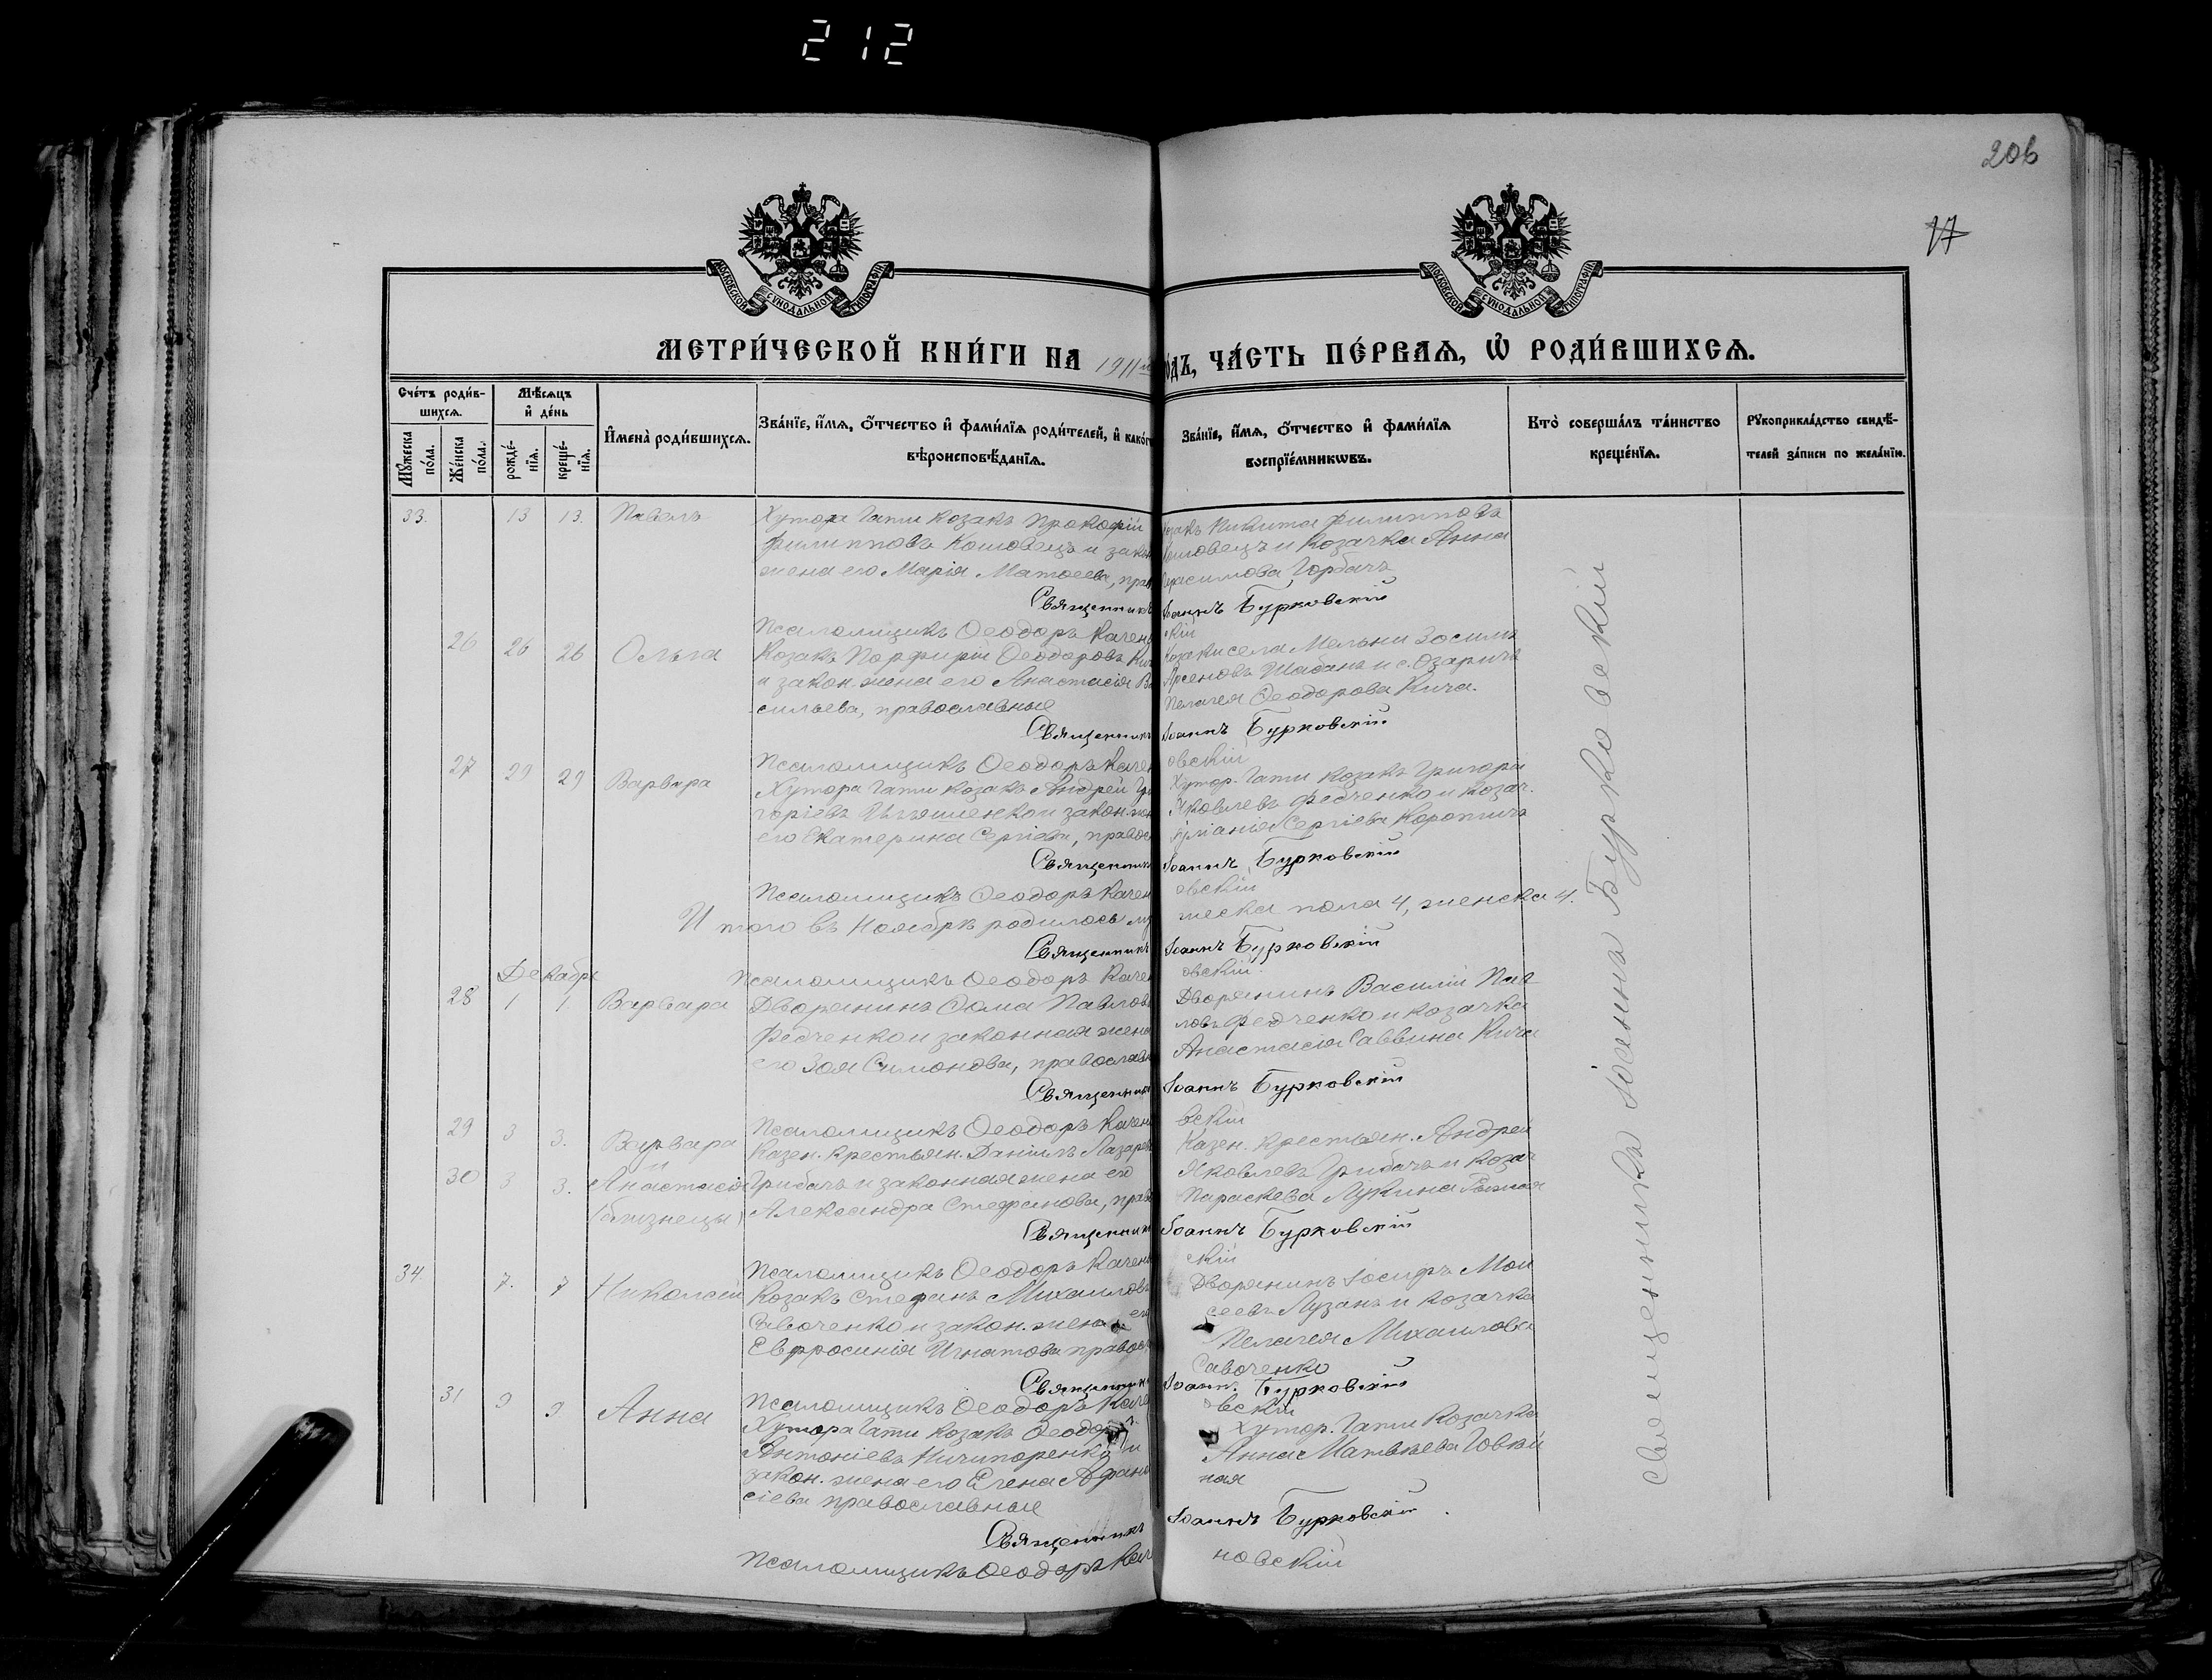 212
206
17
МОСКОВСКОЙ СУНОДАЛЬНОЙ ТИПОГРАФІИ
МОСКОВСКОЙ СУНОДАЛЬНОЙ ТИПОГРАФІИ
МЕТРИ́ЧЕСКОЙ КНИ́ГИ НА 1911й
о́дъ, ЧА́СТЬ ПЕ́РВАѦ, Ѡ҆ РОДИ́ВШИХСѦ.
Сче́тъ роди́в-
шихсѧ.
Мꙋ́жеска по́ла.
Же́нска по́ла.
Мѣ́сѧцъ
и҆ де́нь
рожде́-
нїѧ.
креще́-
нїѧ.
И҆мена̀ роди́вшихсѧ.
Зва́нїе, и҆́мѧ, ѻ҆́тчество и҆ фами́лїѧ роди́телей, и҆ како́г
вѣроисповѣ́данїѧ.
Зва́нїе, и҆́мѧ, ѻ҆́тчество и҆ фами́лїѧ
воспрїе́мникѡвъ.
Кто̀ соверша́лъ та́инство
креще́нїѧ.
Рꙋкоприкла́дство свидѣ́-
телей за́писи по жела́нїю.
33. 13 13. Павелъ
Хутора Гати козакъ Прокофій
Филипповъ Кошовецъ и закон
жена его Марія Матѳеева, прав
козакъ Никита Филипповъ
Кошовецъ и козачка Анна
Герасимова Горбачъ
Священникъ Іоаннъ Бурковскій
Псаломщикъ Ѳеодоръ Качен
скій
26 26 26 Ольга
Козакъ Порфирій Ѳеодоровъ Кич
и закон. жена его Анастасія Ва
сильева, православные
Козаки села Мельни Зосимъ
Арсеновъ Шабанъ и с. Озаричъ
Пелагея Ѳеодорова Кича.
Священникъ Іоаннъ Бурковскій
Псаломщикъ Ѳеодоръ Качен
овскій
27 29 29 Варвара
Хутора Гати козакъ Андрей Гри
горіевъ и закон. жен
его Екатерина Сергіева, правос
Хутор. Гати козакъ Григорій
Яковлевъ Федченко и козач.
Сергіева Коропичъ
Священникъ Іоаннъ Бурковскій
Псаломщикъ Ѳеодоръ Качен
овскій
И того въ Ноябрѣ родилось му
жеска пола 4, женска 4.
Священникъ Іоаннъ Бурковскій
Псаломщикъ Ѳеодоръ Качен
овскій.
Декабрь
28 1 1. Варвара
Дворянинъ Ѳома Павлов
Федченко и законная жена
его Зоя Симонова, православн
Дворянинъ Василій Пав
ловъ Федченко и козачка
Анастасія Саввина Кича
Священникъ Іоаннъ Бурковскій
Псаломщикъ Ѳеодоръ Качен
вскій
29 3 3. Варвара
и
30 3 3. Анастасія
(близнецы)
Казен. крестьян. Даніилъ Лазаре
Грибачъ и законная жена его
Александра Стефанова, прав
Казен. крестьян. Андрей
Яковлевъ Грибачъ и козач
Параскева Лукина
Священникъ Іоаннъ Бурковскій
Псаломщикъ Ѳеодоръ Качен
скій
34. 7. 7 Николай
Козакъ Стефанъ Михаиловъ
Савоченко и закон. жена его
Евфросинія Игнатова правос
Дворянинъ Іосифъ Мои
сеевъ Лузанъ и козачка
Пелагея Михаилова
Савоченко
Священникъ Іоаннъ Бурковскій
Псаломщикъ Ѳеодоръ Каче
овскій
31 9 9 Анна
Хутора Гати козакъ Ѳеодоръ
Антоніевъ Ничипоренко и
закон. жена его Елена Афана
сіева православные
Хутор. Гати козачка
Анна Матвѣева
ная
Священникъ Іоаннъ Бурковскій
Псаломщикъ Ѳеодоръ Каче
новскій
Священникъ Іоаннъ Бурковскій